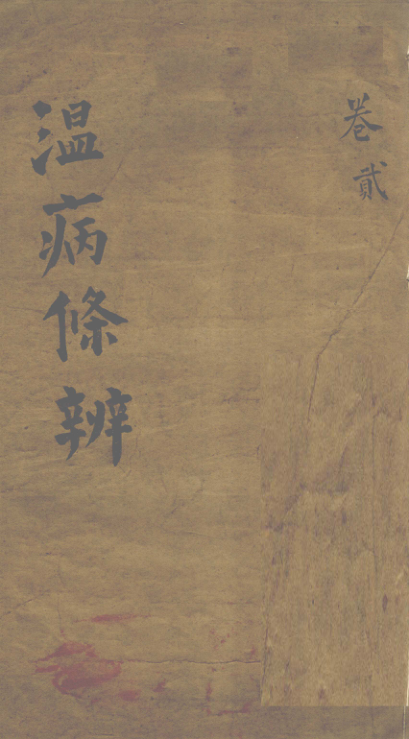 卷貳
温病條辨